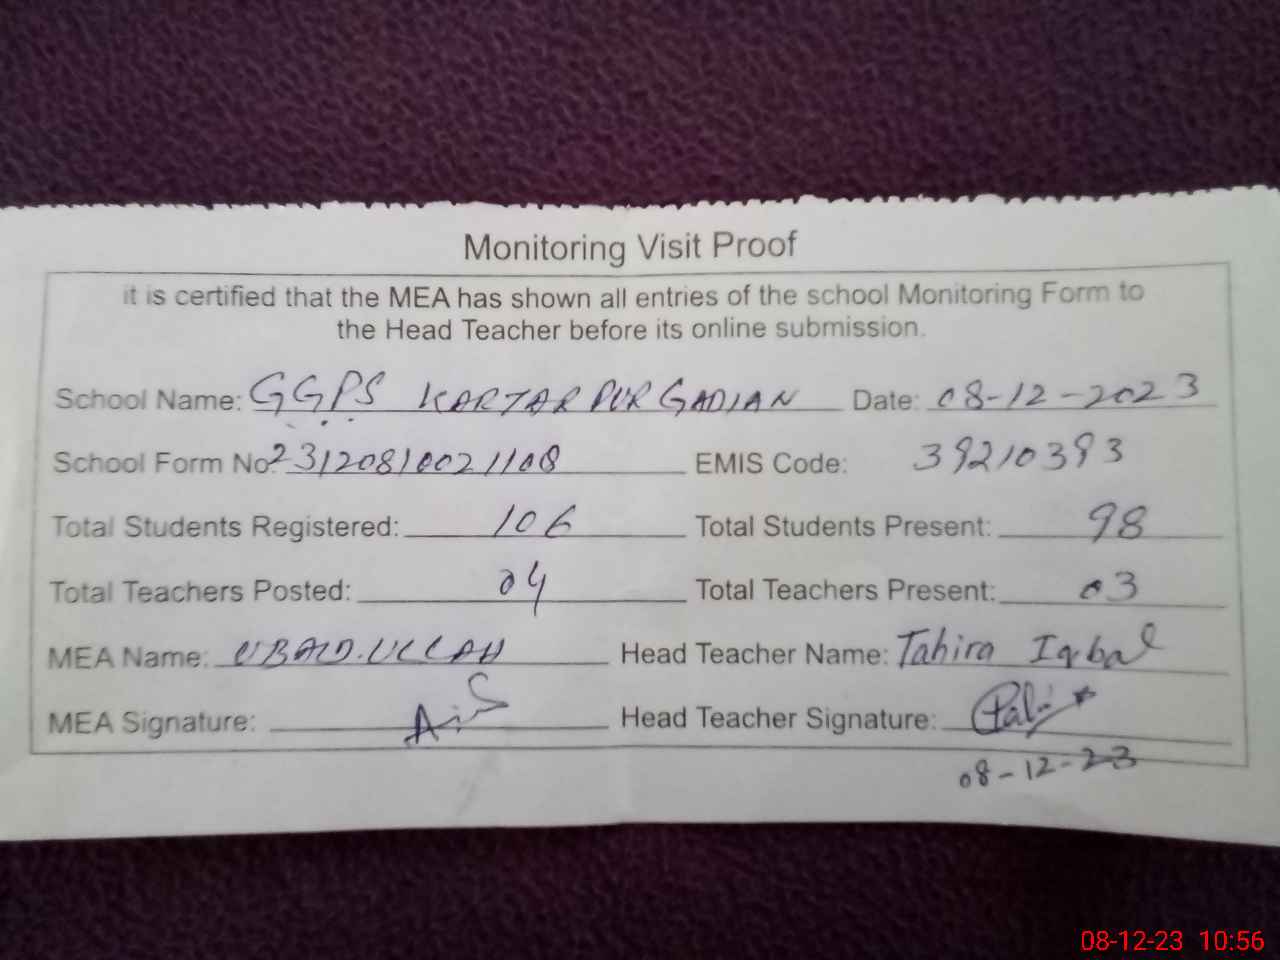 Monitoring Visit Proof
it is certified that the MEA has shown all entries of the school Monitoring Form to
the Head Teacher before its online submission.
School Name: GGPS KARTAR PUR GADIAN Date: 08-12-2023
School Form No 23120810021108 EMIS Code: 39210393
Total Students Registered: 106 Total Students Present: 98
Total Teachers Posted: 04 Total Teachers Present: 03
MEA Name: UBAID.ULLAH Head Teacher Name: Tahira Iqbal
MEA Signature: Head Teacher Signature:
08-12-23
08-12-23 10:56